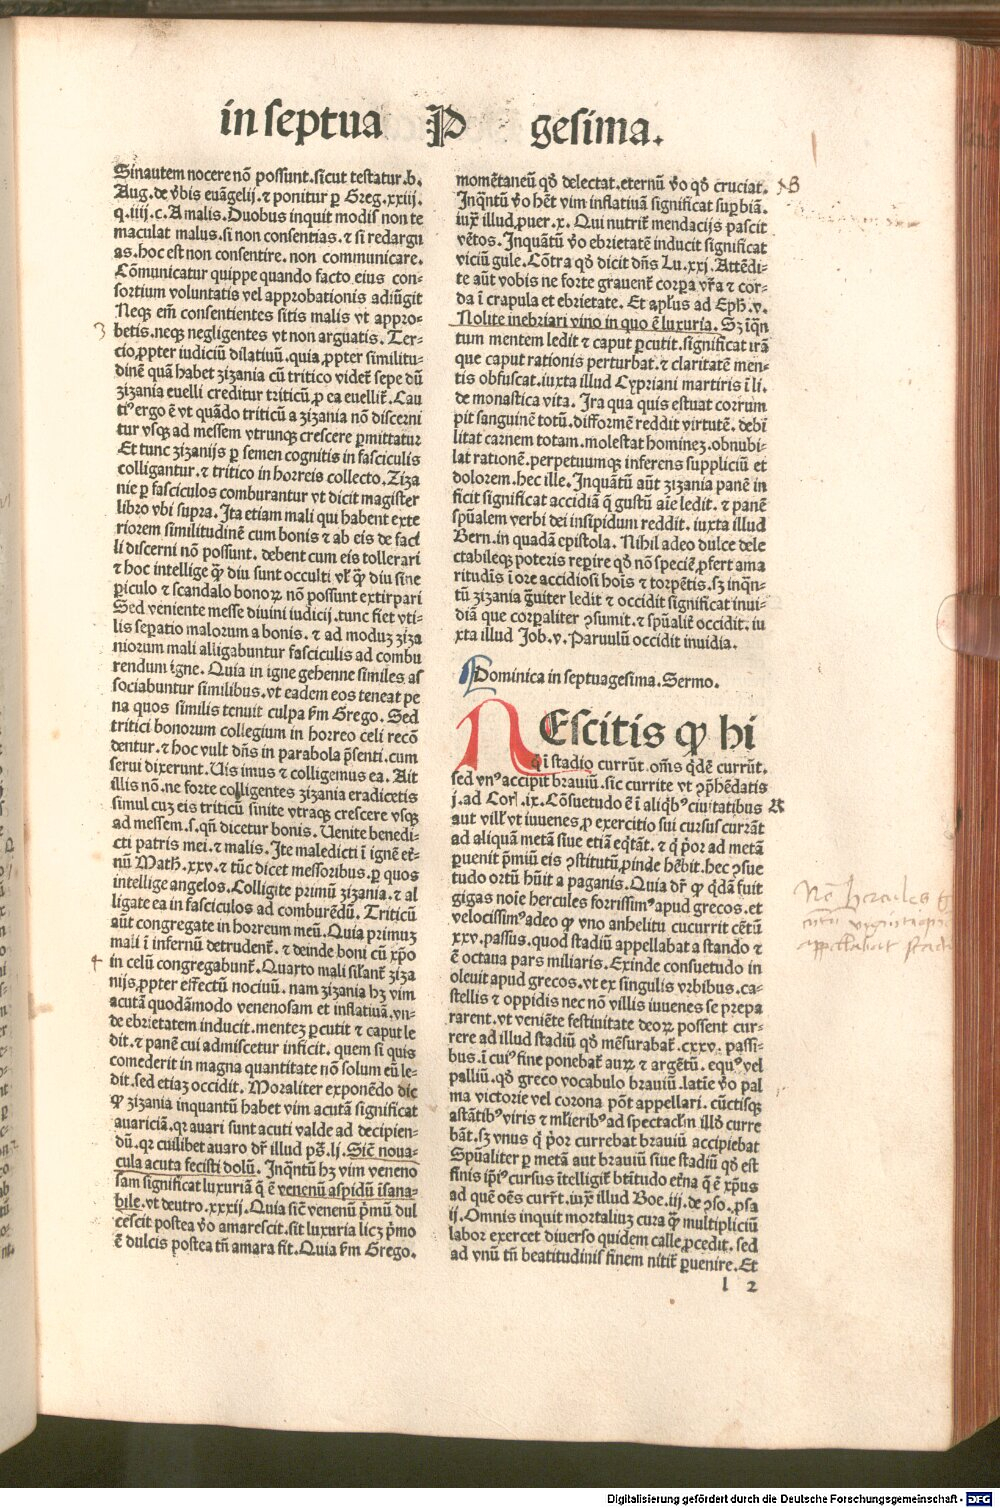 in septua P gesima.
Sinautem nocere nō possunt. sicut testatur .b.
Aug. de v̄bis euāgelij. ⁊ ponitur ꝑ Greg. xxiij.
q. iiij. c. A malis. Duobus inquit modis non te
maculat malus. si non consentias. ⁊ si redargu
as. hoc est non consentire. non communicare.
Cōmunicatur quippe quando facto eius con⸗
sortium voluntatis vel approbationis adiūgit
Neqꝫ em̄ consentientes sitis malis vt appro⸗
betis. neqꝫ negligentes vt non arguatis. Ter⸗
cio ꝓpter iudiciū dilatiuū. quia ꝓpter similitu⸗
dinē quā habet zizania cū tritico videt᷑ sepe dū
zizania euelli creditur triticū ꝓ ea euellit᷑. Cau
tiꝰ ergo ē vt quādo triticū a zizania nō discerni
tur vsqꝫ ad messem vtrunqꝫ crescere ꝑmittatur
Et tunc zizanijs ꝑ semen cognitis in fasciculis
colligantur. ⁊ tritico in horreis collecto. Ziza
nie ꝑ fasciculos comburantur vt dicit magister
libro vbi supra. Ita etiam mali qui habent exte
riorem similitudinē cum bonis ⁊ ab eis de faci
li discerni nō possunt. debent cum eis tollerari
⁊ hoc intellige ꝙ̄ diu sunt occulti vl̕ ꝙ̄ diu sine
ꝑiculo ⁊ scandalo bonoꝝ nō possunt extirpari
Sed veniente messe diuini iudicij. tunc fiet vti⸗
lis seꝑatio malorum a bonis. ⁊ ad moduꝫ ziza
niorum mali alligabuntur fasciculis ad combu
rendum igne. Quia in igne gehenne similes as
sociabuntur similibus. vt eadem eos teneat pe
na quos similis tenuit culpa ẜm Grego. Sed
tritici bonorum collegium in horreo celi recō
dentur. ⁊ hoc vult dn̄s in parabola p̄senti. cum
serui dixerunt. Uis imus ⁊ colligemus ea. Ait
illis nō. ne forte colligentes zizania eradicetis
simul cuꝫ eis triticū sinite vtraqꝫ crescere vsqꝫ
ad messem. s. qn̄ dicetur bonis. Uenite benedi⸗
cti patris mei. ⁊ malis. Ite maledicti ī ignē et̕⸗
nū Math̕. xxv. ⁊ tūc dicet messoribus. ꝑ quos
intellige angelos. Colligite primū zizania. ⁊ al
ligate ea in fasciculos ad comburēdū. Triticū
aūt congregate in horreum meū. Quia primuꝫ
mali ī infernū detrudent᷑. ⁊ deinde boni cū xp̄o
in celū congregabunt᷑. Quarto mali sil̕ant᷑ ziza
nijs ꝓpter effectū nociuū. nam zizania hꝫ vim
acutā quodāmodo venenosam et inflatiuā. vn⸗
de ebrietatem inducit. menteꝫ ꝑcutit ⁊ caput le
dit. ⁊ panē cui admiscetur inficit. quem si quis
comederit in magna quantitate nō solum eū le⸗
dit. sed etiaꝫ occidit. Moraliter exponēdo dic
ꝙ zizania inquantū habet vim acutā significat
auariciā. qꝛ auari sunt acuti valde ad decipien⸗
dū. qꝛ cuilibet auaro dr̄ illud ps̄. lj. Sic̄ noua⸗
cula acuta fecisti dolū. Inqn̄tū hꝫ vim veneno
sam significat luxuriā q̄ ē venenū aspidū īsana⸗
bile. vt deutro. xxxij. Quia sic̄ venenū p̄mū dul
cescit postea v̄o amarescit. sit luxuria licꝫ p̄mo
ē dulcis postea tn̄ amara fit. Quia ẜm Grego.
momētaneū qd̄ delectat. eternū v̄o qd̄ cruciat.
Inqn̄tū v̄o hēt vim inflatiuā significat suꝑbiā.
iux̄ illud ꝓuer. x. Qui nutrit᷑ mendacijs pascit
vētos. Inquātū v̄o ebrietatē inducit significat
viciū gule. Cōtra qd̄ dicit dn̄s Lu. xxj. Attēdi⸗
te aūt vobis ne forte grauent᷑ corꝑa vr̄a ⁊ cor⸗
da ī crapula et ebrietate. Et apl̕us ad Eph̕. v.
Nolite inebriari vino in quo ē luxuria. Sꝫ īqn̄
tum mentem ledit ⁊ caput ꝑcutit. significat irā
que caput rationis perturbat. ⁊ claritatē men⸗
tis obfuscat. iuxta illud Cypriani martiris ī li.
de monastica vita. Ira qua quis estuat corrum
pit sanguinē totū. difformē reddit virtutē. debi
litat carnem totam. molestat hominez. obnubi⸗
lat rationē. perpetuumqꝫ inferens suppliciū et
dolorem. hec ille. Inquātū aūt zizania panē in
ficit significat accidiā q̄ gustū aīe ledit. ⁊ panē
spūalem verbi dei insipidum reddit. iuxta illud
Bern. in quadā epistola. Nihil adeo dulce dele
ctabileqꝫ poteris reꝑire qd̄ nō speciē ꝓfert ama
ritudīs ī ore accidiosi hoīs ⁊ torpētis. sꝫ inqn̄⸗
tū zizania g̃uiter ledit ⁊ occidit significat inui⸗
diā que corꝑaliter ꝯsumit. ⁊ spūalit᷑ occidit. iu
xta illud Job. v. Paruulū occidit inuidia.
Dominica in septuagesima. Sermo.
NEscitis ꝙ hi
qͥ ī stadio currūt. oms̄ qͥdē currūt.
sed vnꝰ accipit brauiū. sic currite vt ꝯp̄hēdatis
j. ad Corī. ix. Cōsuetudo ē ī aliqͥbꝰ ciuitatibus
aut vill̕ vt iuuenes ꝓ exercitio sui cursus currāt
ad aliquā metā siue etiā eqͥtāt. ⁊ qͥ p̄or ad metā
ꝑuenit p̄miū eis ꝯstitutū ꝓinde hēbit. hec ꝯsue
tudo ortū hūit a paganis. Quia dr̄ ꝙ qͥdā fuit
gigas noīe hercules fortissimꝰ apud grecos. et
velocissimꝰ adeo ꝙ vno anhelitu cucurrit cētū
xxv. passus. quod stadiū appellabat a stando ⁊
ē octaua pars miliaris. Exinde consuetudo in
oleuit apud grecos. vt ex singulis vrbibus. ca⸗
stellis ⁊ oppidis nec nō villis iuuenes se prepa
rarent. vt veniēte festiuitate deoꝝ possent cur⸗
rere ad illud stadiū qd̄ mēsurabat᷑. cxxv. passi⸗
bus. ī cuiꝰ fine ponebat᷑ auꝝ ⁊ argētū. equꝰ vel
palliū. qd̄ greco vocabulo brauiū. latīe v̄o pal
ma victorie vel corona pōt appellari. cūctisqꝫ
astātibꝰ viris ⁊ ml̕ieribꝰ ad spectacl̕m ill̕ō curre
bāt. sꝫ vnus qͥ p̄or currebat brauiū accipiebat
Spūaliter ꝑ metā aut brauiū siue stadiū qd̄ est
finis ip̄iꝰ cursus ītelligit᷑ btītudo et̕na q̄ ē xp̄us
ad quē oēs curr̄t. iux̄ illud Boe. iij. de ꝯso. ꝓsa
ij. Omnis inquit mortaliuꝫ cura ꝙ̄ multipliciū
labor exercet diuerso quidem calle ꝓcedit. sed
ad vnū tn̄ beatitudinis finem nitit᷑ ꝑuenire. Et
l 2
3
4
B
A
hercules
Digitalisierung gefördert durch die Deutsche Forschungsgemeinschaft - DFG